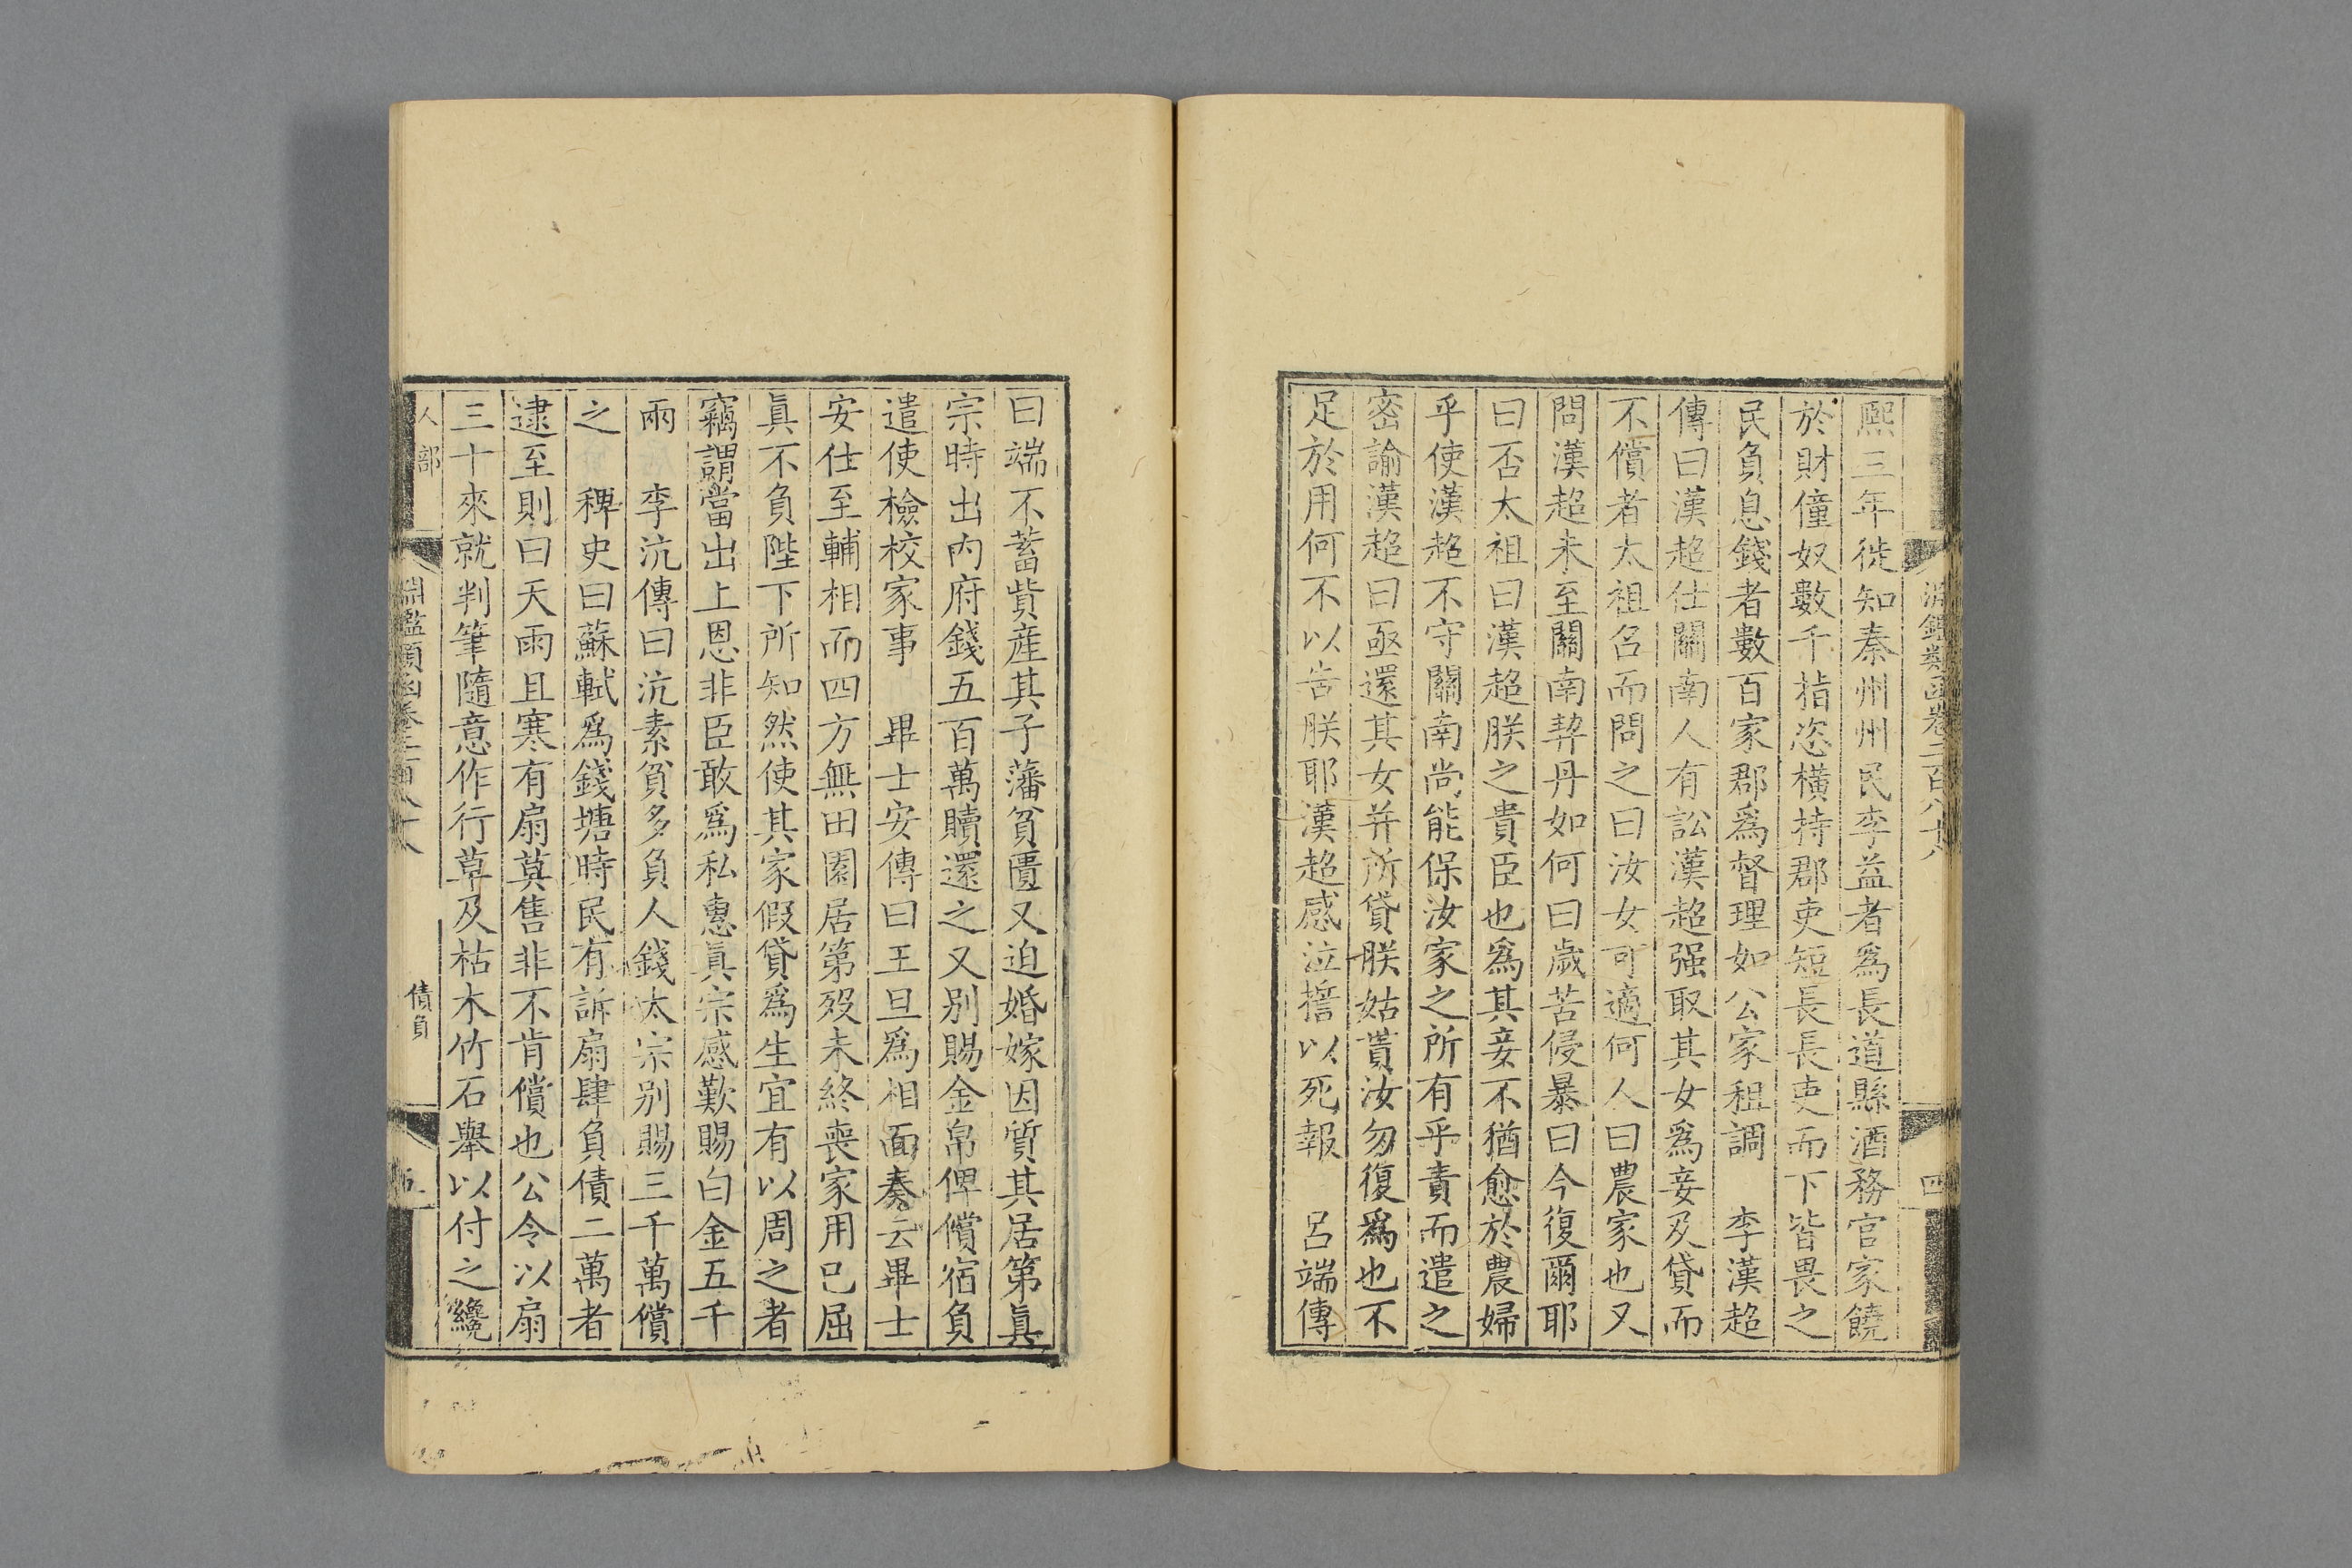 淵鑑類函卷二百八十八
四
熈三年徙知秦州州民李益者爲長道縣酒務官家饒
於財僮奴數千指恣橫持郡吏短長長吏而下皆畏之
民負息錢者數百家郡爲督理如公家租調　李漢超
傳曰漢超仕關南人有訟漢超强取其女爲妾及貸而
不償者太祖召而問之曰汝女可適何人曰農家也又
問漢超未至關南契丹如何曰歲苦侵暴曰今復爾耶
曰否太祖曰漢超朕之貴臣也爲其妾不猶愈於農婦
乎使漢超不守關南尚能保汝家之所有乎責而遣之
密諭漢超曰亟還其女并所貸朕姑貰汝勿復爲也不
足於用何不以告朕耶漢超感泣誓以死報　呂端傳
曰端不蓄貲産其子藩貧匱又迫婚嫁因質其居第眞
宗時出內府錢五百萬贖還之又別賜金帛俾償宿負
遣使檢校家事　畢士安傳曰王旦爲相面奏云畢士
安仕至輔相而四方無田園居第歿未終喪家用已屈
眞不負陛下所知然使其家假貸爲生宜有以周之者
竊謂當出上恩非臣敢爲私惠眞宗感歎賜白金五千
兩　李沆傳曰沆素貧多負人錢太宗别賜三千萬償
之　稗史曰蘇軾爲錢塘時民有訴扇肆負債二萬者
逮至則曰天雨且寒有扇莫售非不肯償也公令以扇
三十來就判筆隨意作行草及枯木竹石舉以付之纔
人部
淵鑑類函卷二百八十八
債負
五